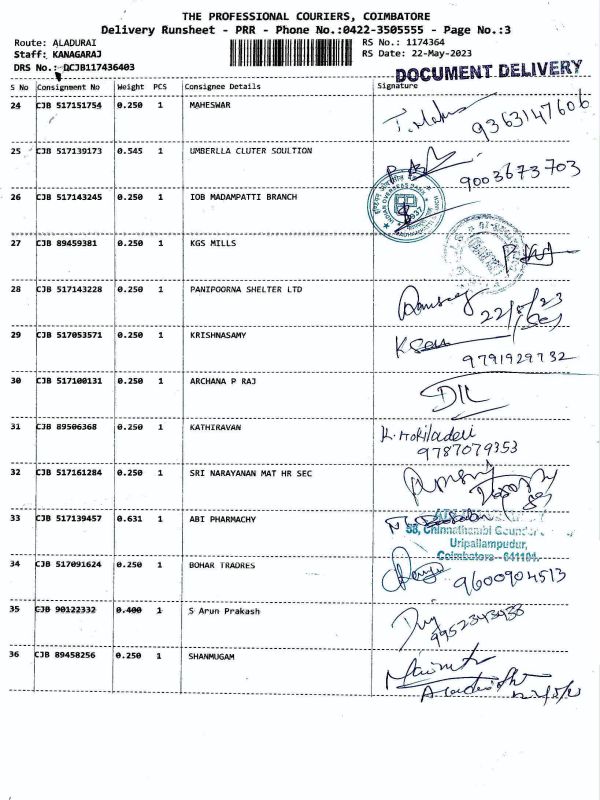 THE PROFESSIONAL COURIERS, COIMBATORE
Delivery Runsheet - PRR - Phone No.:0422-3505555 - Page No.:3
Route: ALADURAI
RS No.: 1174364
Staff: KANAGARAJ
RS Date: 22-May-2023
DRS No.: DCJB117436403
DOCUMENT DELIVERY
S No Consignment No Weight PCS Consignee Details Signature
24 CJB 517151754 0.250 1 MAHESWAR
9363147606
25 CJB 517139173 0.545 1 UMBERLLA CLUTER SOULTION
9003673703
26 CJB 517143245 0.250 1 IOB MADAMPATTI BRANCH
27 CJB 89459381 0.250 1 KGS MILLS
28 CJB 517143228 0.250 1 PANIPOORNA SHELTER LTD
22/5/23
29 CJB 517053571 0.250 1 KRISHNASAMY
9791929732
30 CJB 517100131 0.250 1 ARCHANA P RAJ
31 CJB 89506368 0.250 1 KATHIRAVAN
K. Mokiladevi
9787079353
32 CJB 517161284 0.250 1 SRI NARAYANAN MAT HR SEC
33 CJB 517139457 0.631 1 ABI PHARMACHY
58, Chinnathambi Gounder
Uripallampudur,
Coimbatore - 641104.
34 CJB 517091624 0.250 1 BOHAR TRADRES
9600904513
35 CJB 90122332 0.400 1 S Arun Prakash
9952343438
36 CJB 89458256 0.250 1 SHANMUGAM